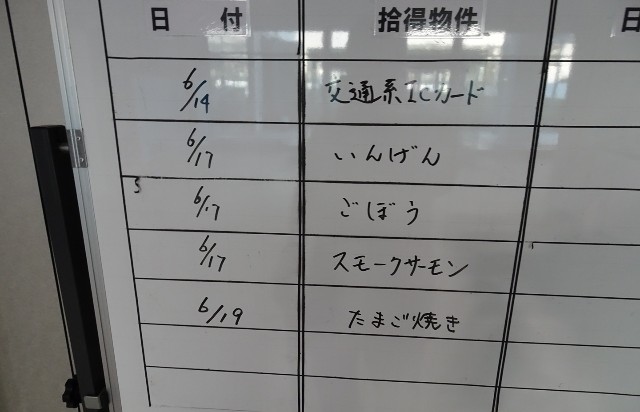 日 付 拾得物件 日
6/14 交通系ICカード
6/17 いんげん
6/17 ごぼう
6/17 スモークサーモン
6/19 たまご焼き